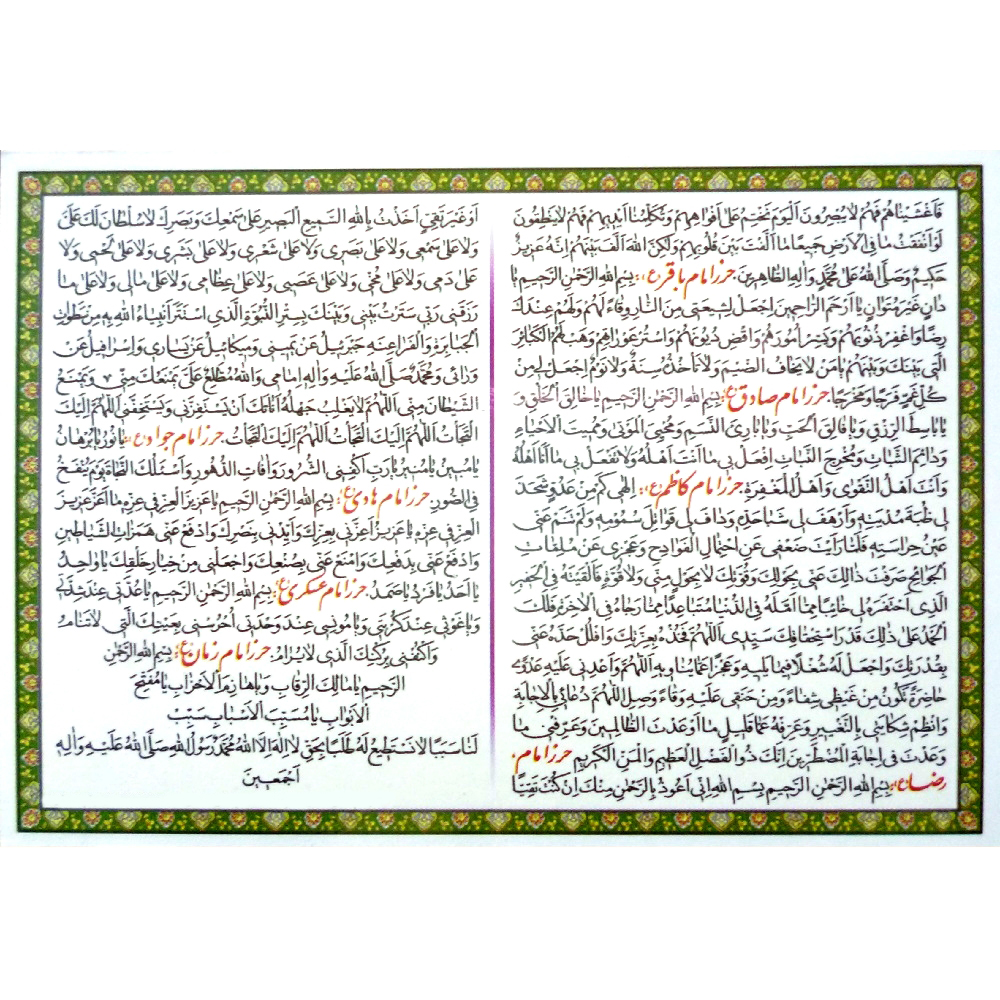 فَاَغْشَیْناهُمْ فَهُمْ لایُبْصِرُونَ اَلْیَوْمَ نَخْتِمُ عَلیٰ اَفْواهِهِمْ وَتُکَلِّمُنا اَیْدیهِمْ فَهُمْ لایَنْطِقُونَ
لَوْ اَنْفَقْتَ مٰا فِی الْاَرْضِ جَمیعًا مٰا اَلَّفْتَ بَیْنَ قُلُوبِهِمْ وَلٰکِنَّ اللهَ اَلَّفَ بَیْنَهُمْ اِنَّهُ عَزیزٌ
حَکیمٌ وَصَلَّی اللهُ عَلیٰ مُحَمَّدٍ وَالِهِ الطّاهِرینَ. حرز امام باقر(ع): بِسْمِ اللهِ الرَّحْمٰنِ الرَّحیمِ یا
دانٍ غَیْرَ مُتَوانٍ یا اَرْحَمَ الرّاحِمینَ اجْعَلْ لِشیعَتی مِنَ النّارِ وِقاءً لَهُمْ وَلَهُمْ عِنْدَكَ
رِضًا وَاغْفِرْ ذُنُوبَهُمْ وَیَسِّرْ اُمُورَهُمْ وَاقْضِ دُیُونَهُمْ وَاسْتُرْ عَوْراتِهِمْ وَهَبْ لَهُمُ الْکَبائِرَ
الَّتی بَیْنَكَ وَبَیْنَهُمْ یامَنْ لایَخافُ الضَّیْمَ وَلا تَأْخُذُهُ سِنَةٌ وَلانَوْمٌ اِجْعَلْ لی مِنْ
کُلِّ غَمٍّ فَرَجًا وَمَخْرَجًا. حرز امام صادق(ع): بِسْمِ اللهِ الرَّحْمٰنِ الرَّحیمِ یاخالِقَ الْخَلْقِ وَ
یاباسِطَ الرِّزْقِ وَیافالِقَ الْحَبِّ وَیابارِئَ النَّسَمِ وَمُحْیِیَ الْمَوْتیٰ وَمُمیتَ الْاَحْیاءِ
وَدائِمَ الثَّباتِ وَمُخْرِجَ النَّباتِ اِفْعَلْ بی مٰا اَنْتَ اَهْلُهُ وَلا تَفْعَلْ بی مٰا اَنَا اَهْلُهُ
وَاَنْتَ اَهْلُ التَّقْویٰ وَاَهْلُ الْمَغْفِرَةِ. حرز امام کاظم(ع): اِلٰهی کَمْ مِنْ عَدُوٍّ شَحَذَ
لی ظُبَةَ مُدْیَتِهِ وَاَرْهَفَ لی شَباحَدِّهِ وَدافَ لی قَواتِلَ سُمُومِهِ وَلَمْ تَنَمْ عَنّی
عَیْنُ حِراسَتِهِ فَلَمّا رَاَیْتَ ضَعْفی عَنِ احْتِمالِ الْفَوادِحِ وَعَجْزی عَنْ مُلِمّاتِ
الْجَوائِحِ صَرَفْتَ ذٰالِكَ عَنّی بِحَوْلِكَ وَقُوَّتِكَ لابِحَوْلٍ مِنّی وَلا قُوَّةٍ فَاَلْقَیْتَهُ فِی الْحَفیرِ
الَّذِی احْتَفَرَهُ لی خائِبًا مِمّا اَمَّلَهُ فِی الدُّنْیا مُتَباعِدًا مِمّا رَجاهُ فِی الْاٰخِرَةِ فَلَكَ
الْحَمْدُ عَلیٰ ذٰلِكَ قَدْرَ اسْتِحْقاقِكَ سَیِّدی اَللّهُمَّ فَخُذْهُ بِعِزَّتِكَ وَافْلُلْ حَدَّهُ عَنّی
بِقُدْرَتِكَ وَاجْعَلْ لَهُ شُغْلًا فیمایَلیهِ وَعَجْزًا عَمّایُناویهِ اَللّهُمَّ وَاَعْدِنی عَلَیْهِ عَدْوًی
حاضِرَةً تَکُونُ مِنْ غَیْظی شِفاءً وَمِنْ حَنَقی عَلَیْهِ وَقاءً وَصِلِ اللّهُمَّ دُعایی بِالْاِجابَةِ
وَانْظِمْ شِکایَتی بِالتَّغْییرِ وَعَرِّفْهُ عَمّا قَلیلٍ مٰا اَوْعَدْتَ الظّالِمینَ وَعَرِّفْنی مٰا
وَعَدْتَ فی اِجابَةِ الْمُضْطَرّینَ اِنَّكَ ذُوالْفَضْلِ الْعَظیمِ وَالْمَنِّ الْکَریمِ حرز امام
رضا(ع): بِسْمِ اللهِ الرَّحْمٰنِ الرَّحیمِ بِسْمِ اللهِ اِنّی اَعُوذُ بِالرَّحْمٰنِ مِنْكَ اِنْ کُنْتَ تَقِیًّا
اَوْ غَیْرَ تَقِیٍّ اَخَذْتُ بِاللهِ السَّمیعِ الْبَصیرِ عَلیٰ سَمْعِكَ وَبَصَرِكَ لاسُلْطانَ لَكَ عَلَیَّ
وَلاعَلیٰ سَمْعی وَلاعَلیٰ بَصَری وَلاعَلیٰ شَعْری وَلاعَلیٰ بَشَری وَلاعَلیٰ لَحْمی وَلا
عَلیٰ دَمی وَلاعَلیٰ مُخّی وَلاعَلیٰ عَصَبی وَلاعَلیٰ عِظامی وَلاعَلیٰ مالی وَلاعَلیٰ مٰا
رَزَقَنی رَبّی سَتَرْتُ بَیْنی وَبَیْنَكَ بِسِتْرِ النُّبُوَّةِ الَّذِی اسْتَتَرَ اَنْبِیاءُ اللهِ بِهِ مِنْ سَطَواتِ
الْجَبابِرَةِ وَالْفَراعِنَةِ جَبْرَئیلُ عَنْ یَمینی وَمیکائیلُ عَنْ یَساری وَاِسْرافیلُ عَنْ
وَرائی وَمُحَمَّدٌ صَلَّی اللهُ عَلَیْهِ وَالِهِ اِمامی وَاللهُ مُطَّلِعٌ عَلَیَّ یَمْنَعُكَ مِنّی وَیَمْنَعُ
الشَّیْطانَ مِنّی اَللّهُمَّ لایَغْلِبْ جَهْلُهُ اَناتَكَ اَنْ یَسْتَفِزَّنی وَیَسْتَخِفَّنی اَللّهُمَّ اِلَیْكَ
الْتَجَأْتُ اَللّهُمَّ اِلَیْكَ الْتَجَأْتُ اَللّهُمَّ اِلَیْكَ الْتَجَأْتُ. حرز امام جواد(ع): یانُورُ یابُرْهانُ
یامُبینُ یامُنیرُ یارَبِّ اکْفِنِی الشُّرُورَ وَاٰفاتِ الدُّهُورِ وَاَسْئَلُكَ النَّجاةَ یَوْمَ یُنْفَخُ
فِی الصُّورِ. حرز امام هادی(ع): بِسْمِ اللهِ الرَّحْمٰنِ الرَّحیمِ یاعَزیزَ الْعِزِّ فی عِزِّهِ مٰا اَعَزَّ عَزیزَ
الْعِزِّ فی عِزِّهِ یاعَزیزُ اَعِزَّنی بِعِزِّكَ وَاَیِّدْنی بِنَصْرِكَ وَادْفَعْ عَنّی هَمَزاتِ الشَّیاطینِ
وَادْفَعْ عَنّی بِدَفْعِكَ وَامْنَعْ عَنّی بِصُنْعِكَ وَاجْعَلْنی مِنْ خِیارِ خَلْقِكَ یاواحِدُ
یا اَحَدُ یافَرْدُ یاصَمَدُ. حرز امام عسکری(ع): بِسْمِ اللهِ الرَّحْمٰنِ الرَّحیمِ یاعُدَّتی عِنْدَ شِدَّتی
وَیاغَوْثی عِنْدَ کُرْبَتی وَیامُونِسی عِنْدَ وَحْدَتی اُحْرُسْنی بِعَیْنِكَ الَّتی لاتَنامُ
وَاکْنُفْنی بِرُکْنِكَ الَّذی لایُرامُ. حرز امام زمان(ع): بِسْمِ اللهِ الرَّحْمٰنِ
الرَّحیمِ یامالِكَ الرِّقابِ وَیاهازِمَ الْاَحْزابِ یامُفَتِّحَ
الْاَبْوابِ یامُسَبِّبَ الْاَسْبابِ سَبِّبْ
لَناسَبَبًا لانَسْتَطیعُ لَهُ طَلَبًا بِحَقِّ لا اِلٰهَ اِلَّا اللهُ مُحَمَّدٌ رَسُولُ اللهِ صَلَّی اللهُ عَلَیْهِ وَالِهِ
اَجْمَعینَ